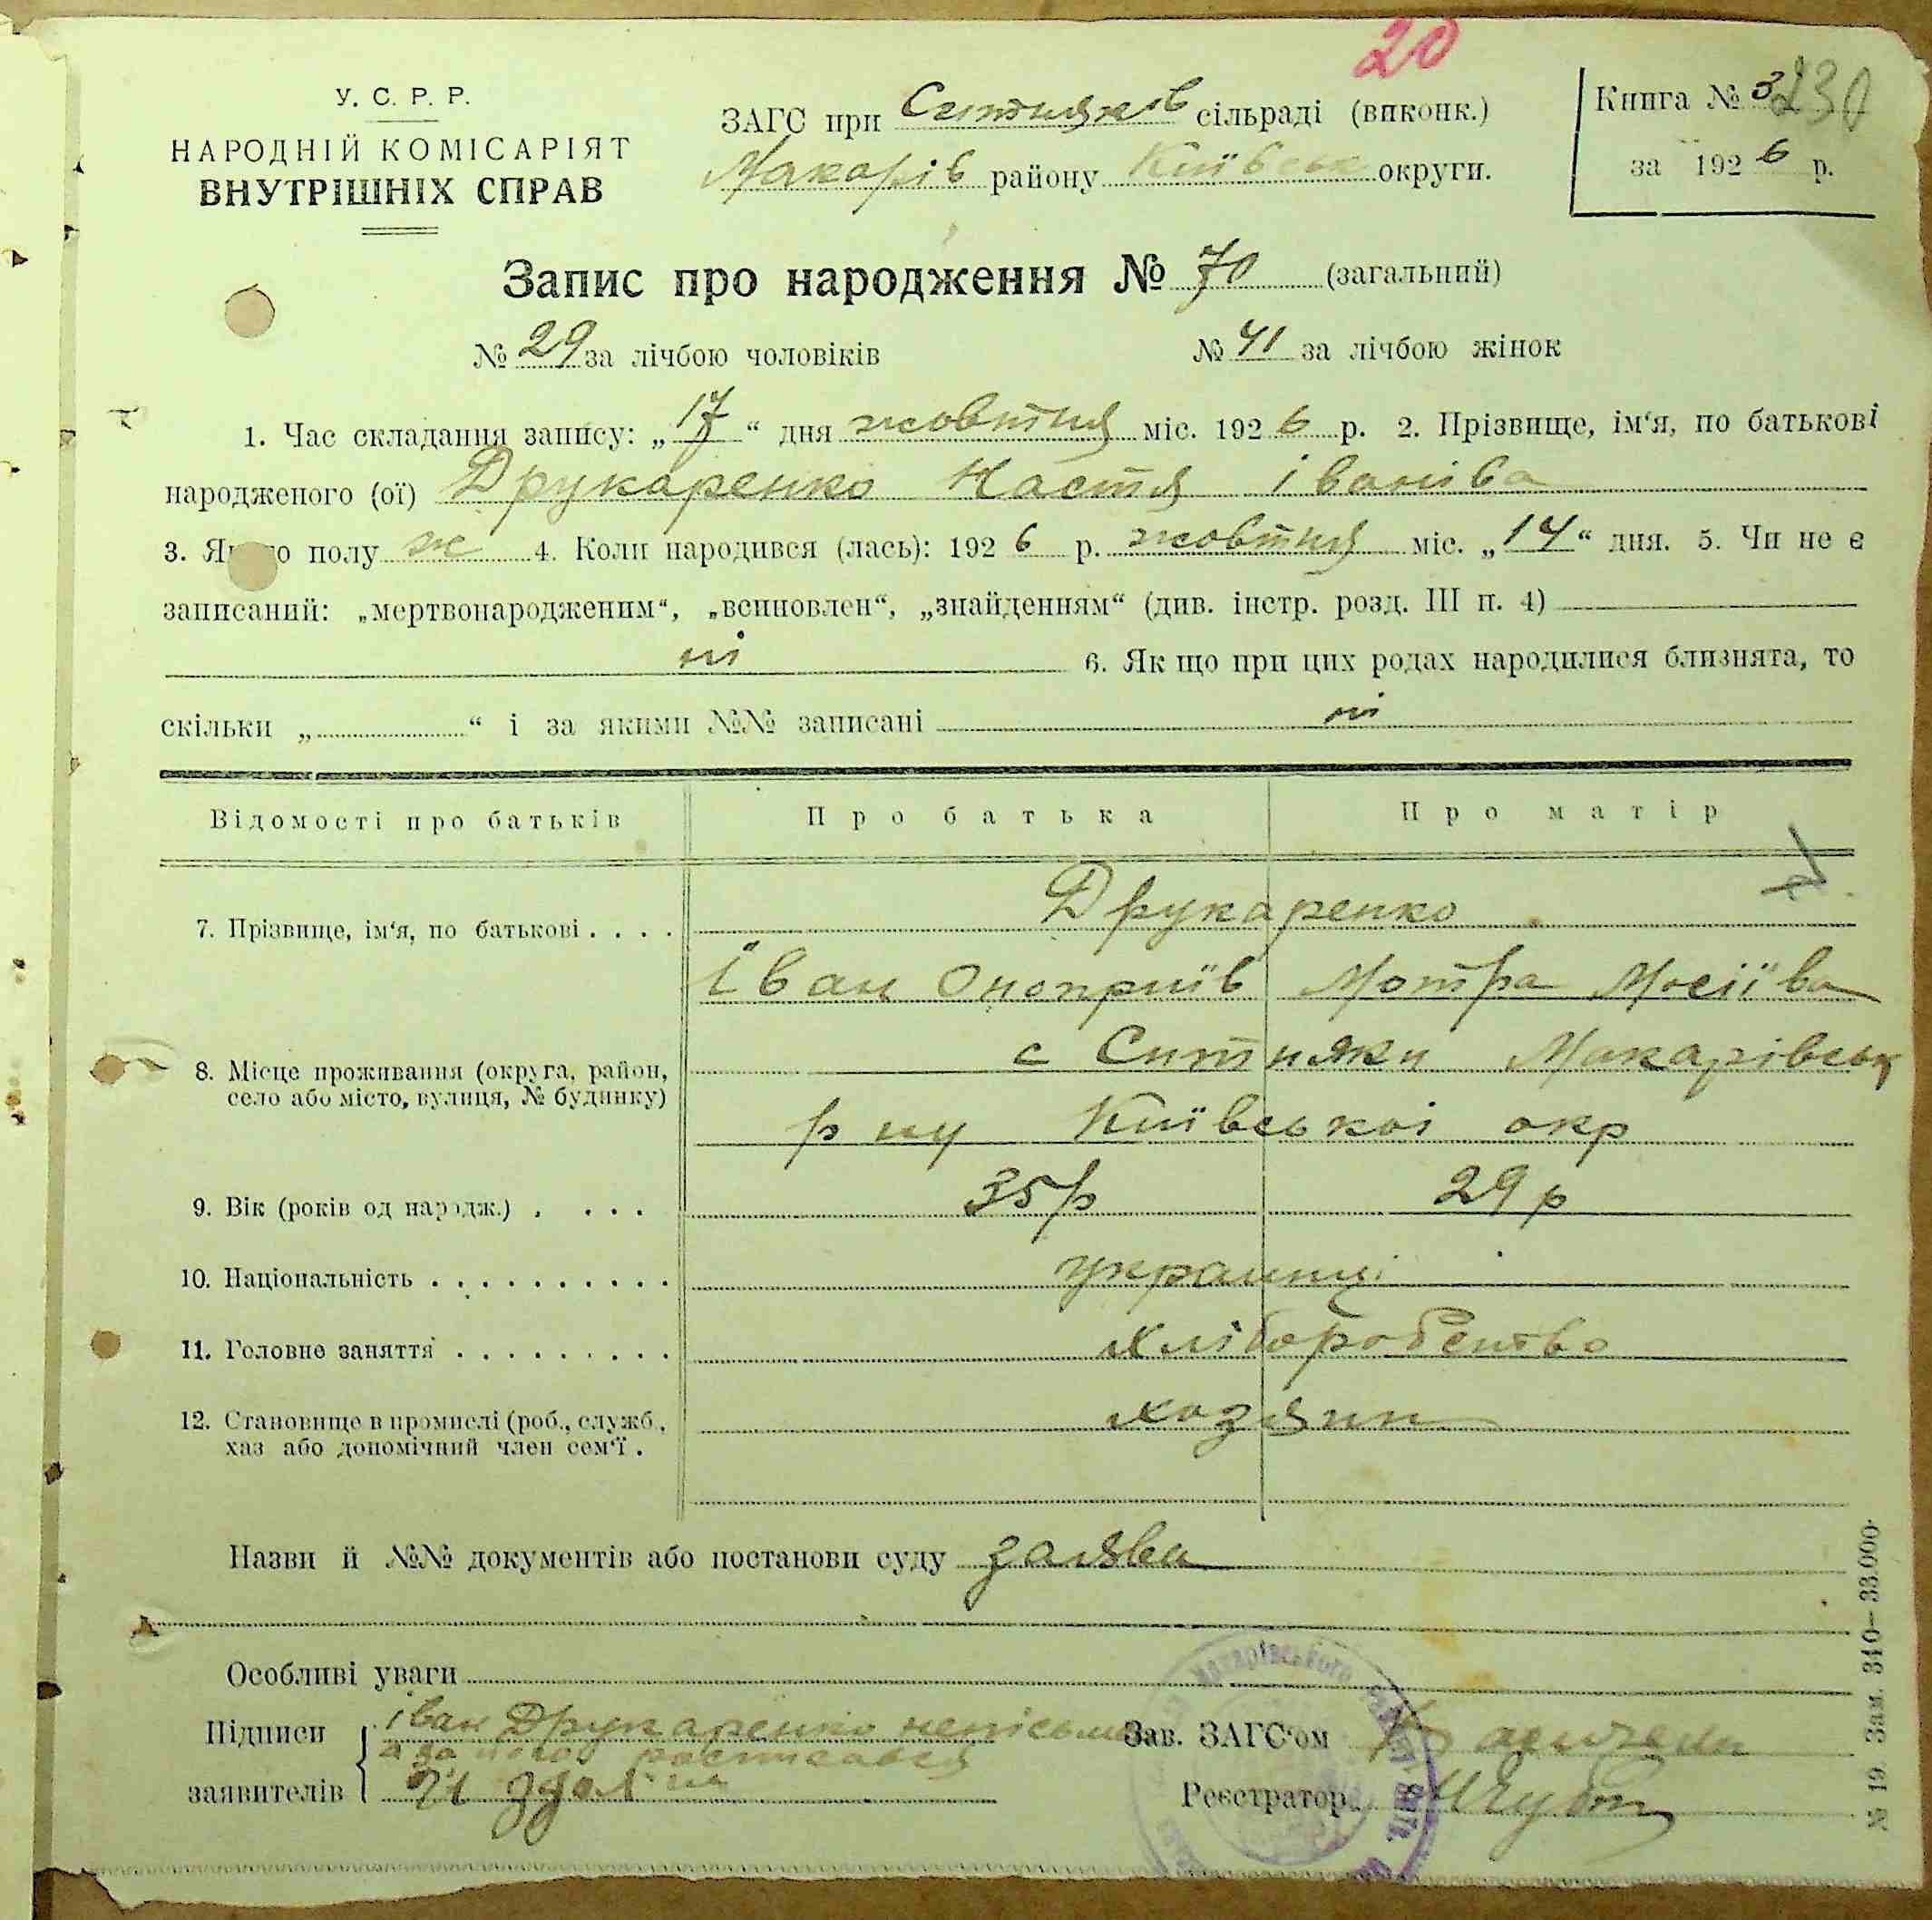 20
У. С. Р. Р.
НАРОДНІЙ КОМІСАРІЯТ
ВНУТРІШНІХ СПРАВ
ЗАГС при Ситняків сільраді (виконк.)
Макарів району Київськ округи.
Книга № 3 230
за 1926 р.
Запис про народження № 70 (загальний)
№ 29 за лічбою чоловіків № 41 за лічбою жінок
1. Час складання запису: „17“ дня жовтня міс. 1926 р. 2. Прізвище, ім‘я, по батькові
народженого (ої) Друкаренко Настя іванівa
3. Якого полу ж 4. Коли народився (лась): 1926 р. жовтня міс. „14“ дня. 5. Чи не є
записаний: „мертвонародженим“, „всиновлен“, „знайденням“ (див. інстр. розд. III п. 4)
ні 6. Як що при цих родах народилися близнята, то
скільки „ “ і за якими №№ записані ні
Відомості про батьків Про батька Про матір
Друкаренко
7. Прізвище, ім‘я, по батькові . . . .
Іван Оноприїв Мотра Мосіїва
8. Місце проживання (округа, район, с Ситняки Макарівськ
село або місто, вулиця, № будинку)
р ну Київської окр
9. Вік (років од народж.) . . . . 35 р 29 р
10. Національність . . . . . . . . . . українці
11. Головне заняття . . . . . . . . . хліборобство
12. Становище в промислі (роб., служб., хозяин
хаз або допомічний член сем‘ї .
Назви й №№ документів або постанови суду заява
Особливі уваги
Підписи іван Друкаренко Зав. ЗАГС‘ом
а за його росписався
заявителів Реєстратор
Макарівського
№ 19. Зам. 340—33.000.